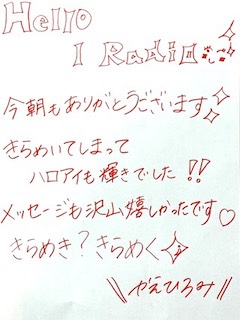 Hello
I Radio
今朝もありがとうございます
きらめいてしまって
ハロアイも輝きでした!!
メッセージも沢山嬉しかったです♡
きらめき?きらめく
\\ かえひろみ //